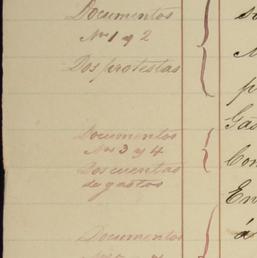 Documentos
Nos 1 y 2
Dos protestas
Documentos
Nos 3 y 4
Dos cuentas
de gastos
Documentos
Gas
Con
En
á